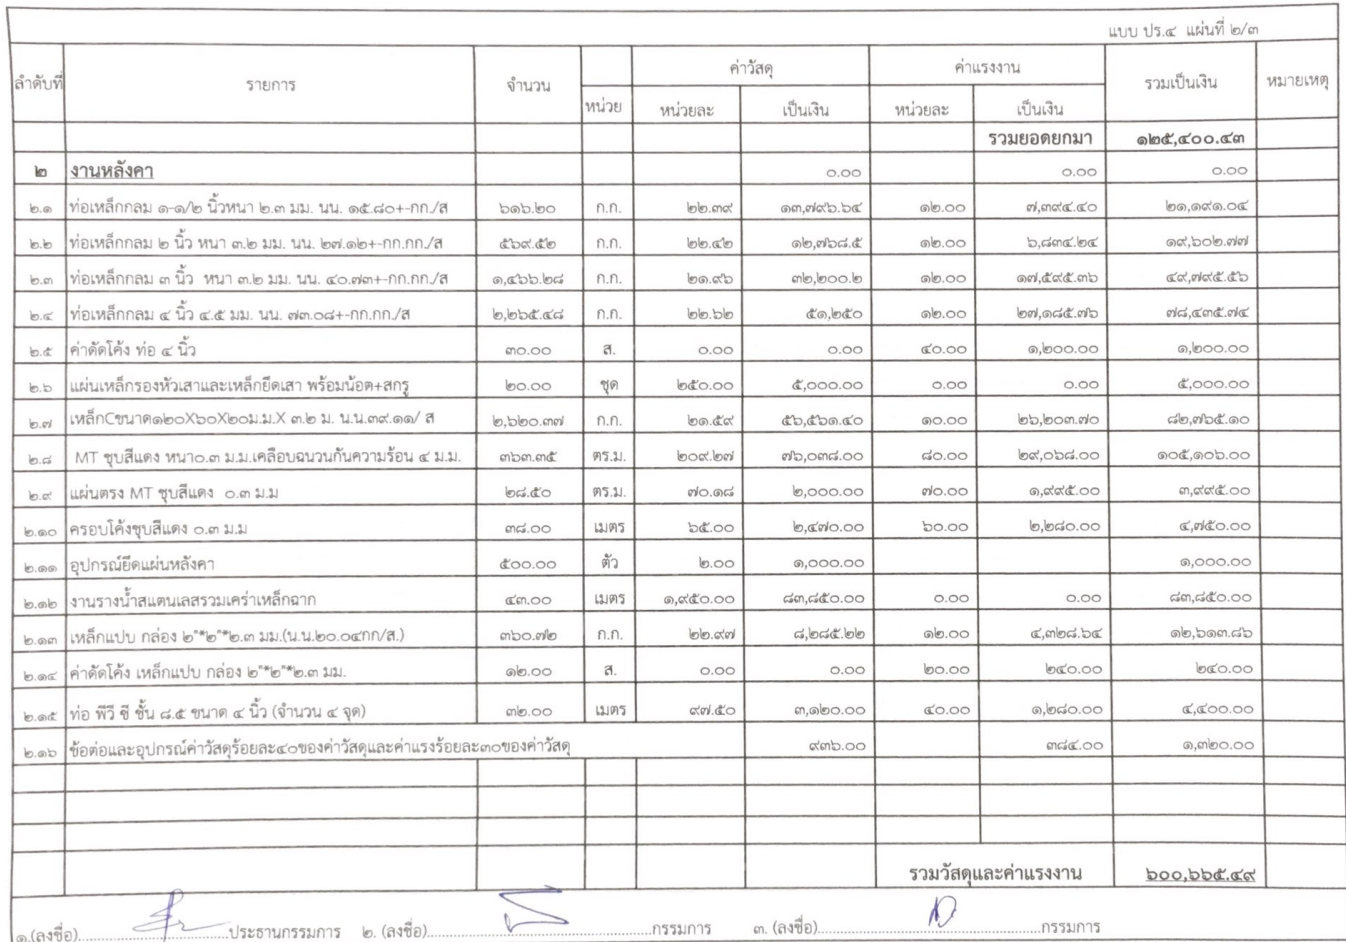 แบบ ปร.๔ แผ่นที่ ๒/๓
ลำดับที่ รายการ จำนวน หน่วย ค่าวัสดุ ค่าแรงงาน รวมเป็นเงิน หมายเหตุ
หน่วยละ เป็นเงิน หน่วยละ เป็นเงิน
รวมยอดยกมา ๑๒๕,๔๐๐.๔๓
๒ งานหลังคา ๐.๐๐ ๐.๐๐ ๐.๐๐
๒.๑ ท่อเหล็กกลม ๑-๑/๒ นิ้วหนา ๒.๓ มม. นน. ๑๕.๘๐+-กก./ส ๖๑๖.๒๐ ก.ก. ๒๒.๓๙ ๑๓,๗๙๖.๖๔ ๑๒.๐๐ ๗,๓๙๔.๔๐ ๒๑,๑๙๑.๐๔
๒.๒ ท่อเหล็กกลม ๒ นิ้ว หนา ๓.๒ มม. นน. ๒๗.๑๒+-กก.กก./ส ๕๖๙.๕๒ ก.ก. ๒๒.๔๒ ๑๒,๗๖๘.๕ ๑๒.๐๐ ๖,๘๓๔.๒๔ ๑๙,๖๐๒.๗๗
๒.๓ ท่อเหล็กกลม ๓ นิ้ว หนา ๓.๒ มม. นน. ๔๐.๗๓+-กก.กก./ส ๑,๔๖๖.๒๘ ก.ก. ๒๑.๙๖ ๓๒,๒๐๐.๒ ๑๒.๐๐ ๑๗,๕๙๕.๓๖ ๔๙,๗๙๕.๕๖
๒.๔ ท่อเหล็กกลม ๔ นิ้ว ๔.๕ มม. นน. ๗๓.๐๘+-กก.กก./ส ๒,๒๖๕.๔๘ ก.ก. ๒๒.๖๒ ๕๑,๒๕๐ ๑๒.๐๐ ๒๗,๑๘๕.๗๖ ๗๘,๔๓๕.๗๔
๒.๕ ค่าดัดโค้ง ท่อ ๔ นิ้ว ๓๐.๐๐ ส. ๐.๐๐ ๐.๐๐ ๔๐.๐๐ ๑,๒๐๐.๐๐ ๑,๒๐๐.๐๐
๒.๖ แผ่นเหล็กรองหัวเสาและเหล็กยึดเสา พร้อมน้อต+สกรู ๒๐.๐๐ ชุด ๒๕๐.๐๐ ๕,๐๐๐.๐๐ ๐.๐๐ ๐.๐๐ ๕,๐๐๐.๐๐
๒.๗ เหล็กCขนาด๑๒๐X๖๐X๒๐ม.ม.X ๓.๒ ม. น.น.๓๙.๑๑/ ส ๒,๖๒๐.๓๗ ก.ก. ๒๑.๕๙ ๕๖,๕๖๑.๔๐ ๑๐.๐๐ ๒๖,๒๐๓.๗๐ ๘๒,๗๖๕.๑๐
๒.๘ MT ชุบสีแดง หนา๐.๓ ม.ม.เคลือบฉนวนกันความร้อน ๔ ม.ม. ๓๖๓.๓๕ ตร.ม. ๒๐๙.๒๗ ๗๖,๐๓๘.๐๐ ๘๐.๐๐ ๒๙,๐๖๘.๐๐ ๑๐๕,๑๐๖.๐๐
๒.๙ แผ่นตรง MT ชุบสีแดง ๐.๓ ม.ม ๒๘.๕๐ ตร.ม. ๗๐.๑๘ ๒,๐๐๐.๐๐ ๗๐.๐๐ ๑,๙๙๕.๐๐ ๓,๙๙๕.๐๐
๒.๑๐ ครอบโค้งชุบสีแดง ๐.๓ ม.ม ๓๘.๐๐ เมตร ๖๕.๐๐ ๒,๔๗๐.๐๐ ๖๐.๐๐ ๒,๒๘๐.๐๐ ๔,๗๕๐.๐๐
๒.๑๑ อุปกรณ์ยึดแผ่นหลังคา ๕๐๐.๐๐ ตัว ๒.๐๐ ๑,๐๐๐.๐๐ ๑,๐๐๐.๐๐
๒.๑๒ งานรางน้ำสแตนเลสรวมเคร่าเหล็กฉาก ๔๓.๐๐ เมตร ๑,๙๕๐.๐๐ ๘๓,๘๕๐.๐๐ ๐.๐๐ ๐.๐๐ ๘๓,๘๕๐.๐๐
๒.๑๓ เหล็กแปบ กล่อง ๒"*๒"*๒.๓ มม.(น.น.๒๐.๐๔กก/ส.) ๓๖๐.๗๒ ก.ก. ๒๒.๙๗ ๘,๒๘๕.๒๒ ๑๒.๐๐ ๔,๓๒๘.๖๔ ๑๒,๖๑๓.๘๖
๒.๑๔ ค่าดัดโค้ง เหล็กแปบ กล่อง ๒"*๒"*๒.๓ มม. ๑๒.๐๐ ส. ๐.๐๐ ๐.๐๐ ๒๐.๐๐ ๒๔๐.๐๐ ๒๔๐.๐๐
๒.๑๕ ท่อ พีวี ซี ชั้น ๘.๕ ขนาด ๔ นิ้ว (จำนวน ๔ จุด) ๓๒.๐๐ เมตร ๙๗.๕๐ ๓,๑๒๐.๐๐ ๔๐.๐๐ ๑,๒๘๐.๐๐ ๔,๔๐๐.๐๐
๒.๑๖ ข้อต่อและอุปกรณ์ค่าวัสดุร้อยละ๔๐ของค่าวัสดุและค่าแรงร้อยละ๓๐ของค่าวัสดุ ๙๓๖.๐๐ ๓๘๔.๐๐ ๑,๓๒๐.๐๐
รวมวัสดุและค่าแรงงาน ๖๐๐,๖๖๕.๔๙
๑.(ลงชื่อ)..............ประธานกรรมการ ๒. (ลงชื่อ)..............กรรมการ ๓. (ลงชื่อ)..............กรรมการ